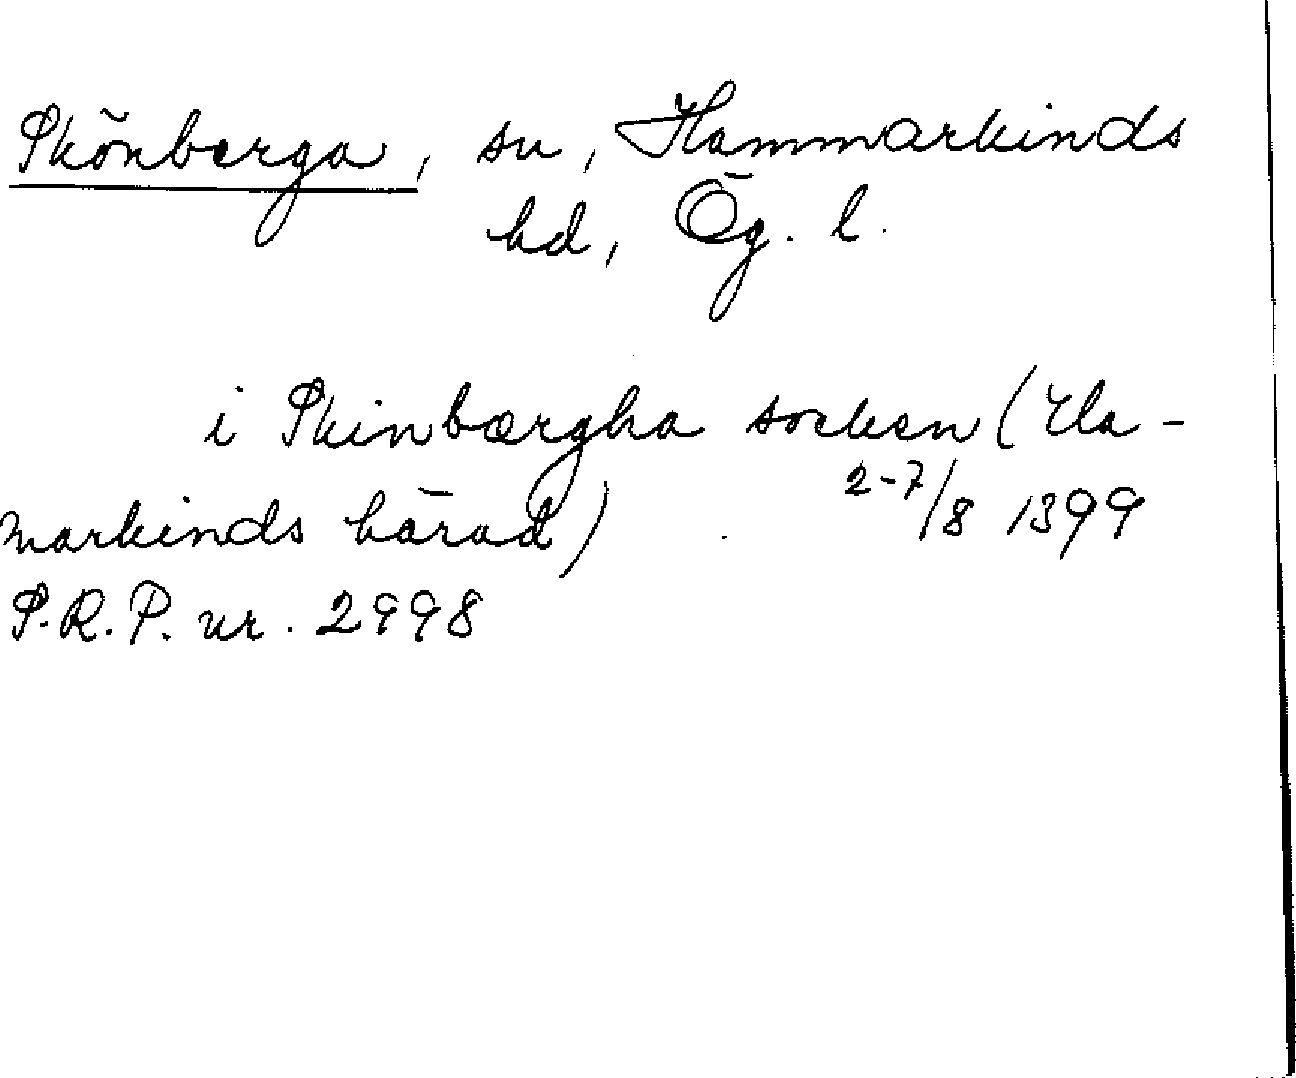 Skönberga, sn, Hammarkinds
hd, Ög. l.
i Skinbærgha socken (Ha-
markinds härad) 2-7/8 1399
S.R.P. nr. 2998